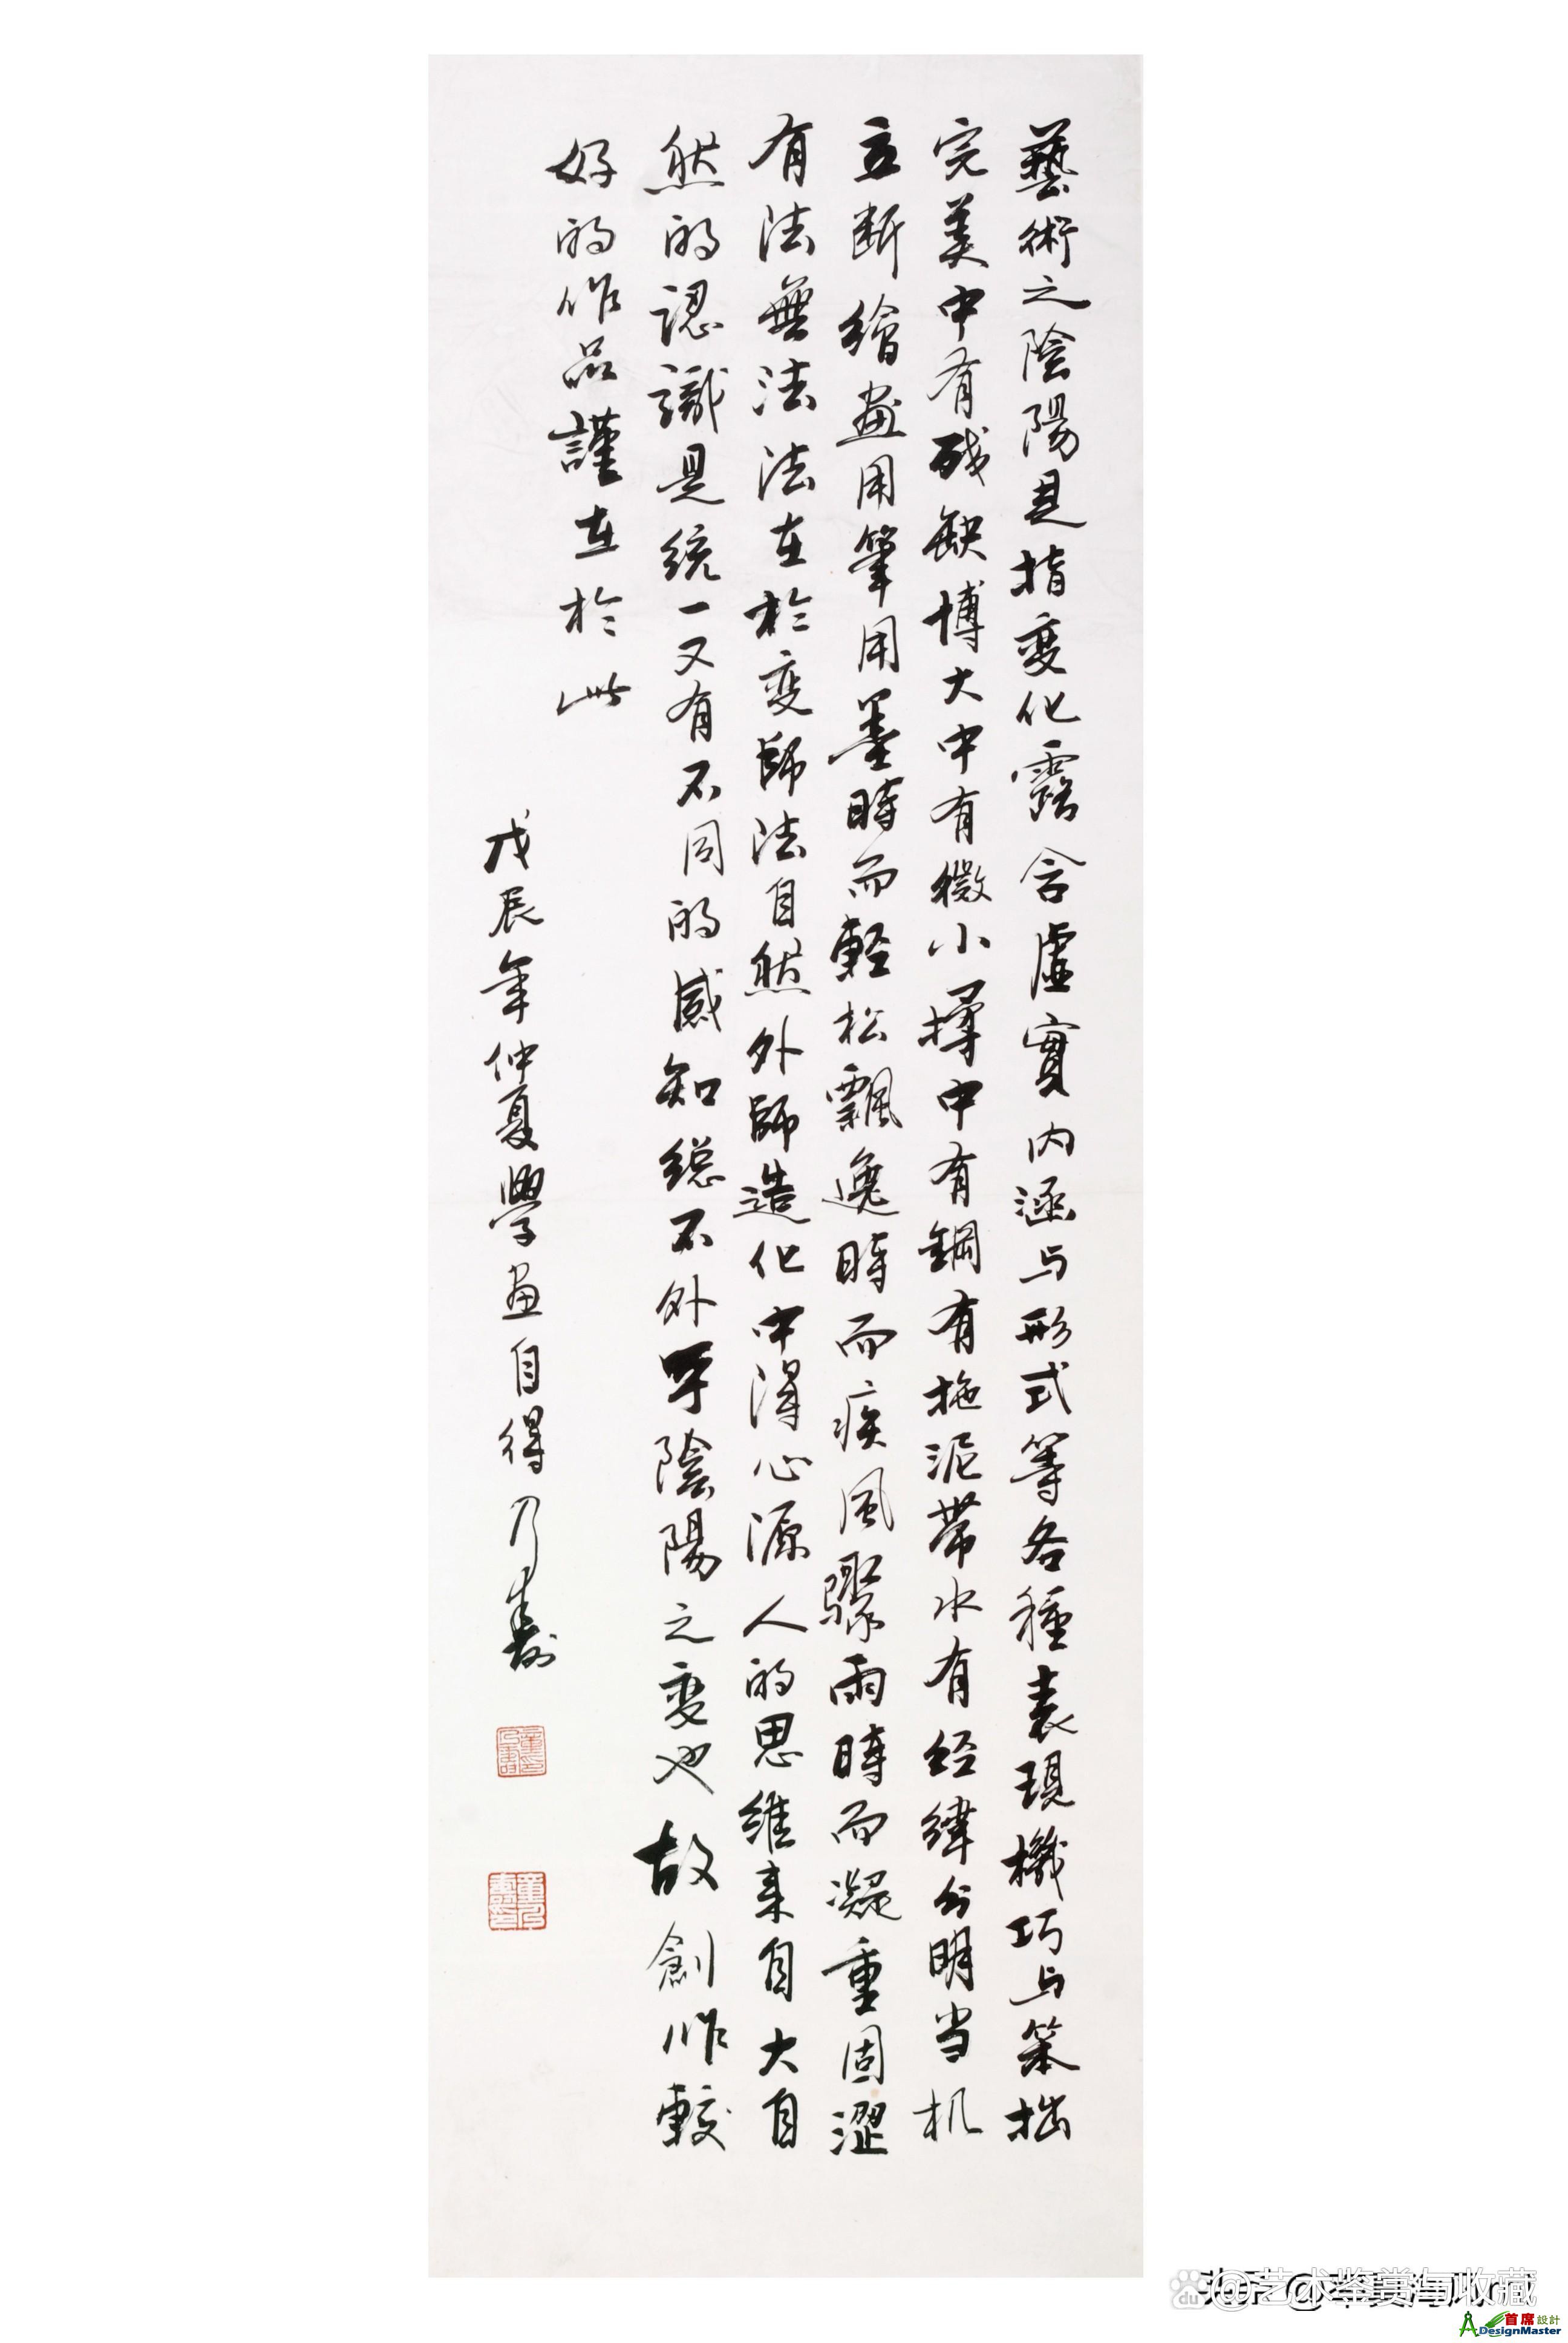 藝術之陰陽是指变化露含虛實内涵与形式等各種表現機巧与笨拙
完美中有残缺博大中有微小揉中有鋼有拖泥帶水有经緯分明当机
立断繪畫用筆用墨時而輕松飄逸時而疾风驟雨時而凝重固澀
有法無法法在於变師法自然外師造化中得心源人的思維来自大自
然的認識是統一又有不同的感知總不外乎陰陽之变也故創作較
好的作品謹在於此
戊辰年仲夏學画自得乃壽
艺术鉴赏与收藏
首席設計
DesignMaster